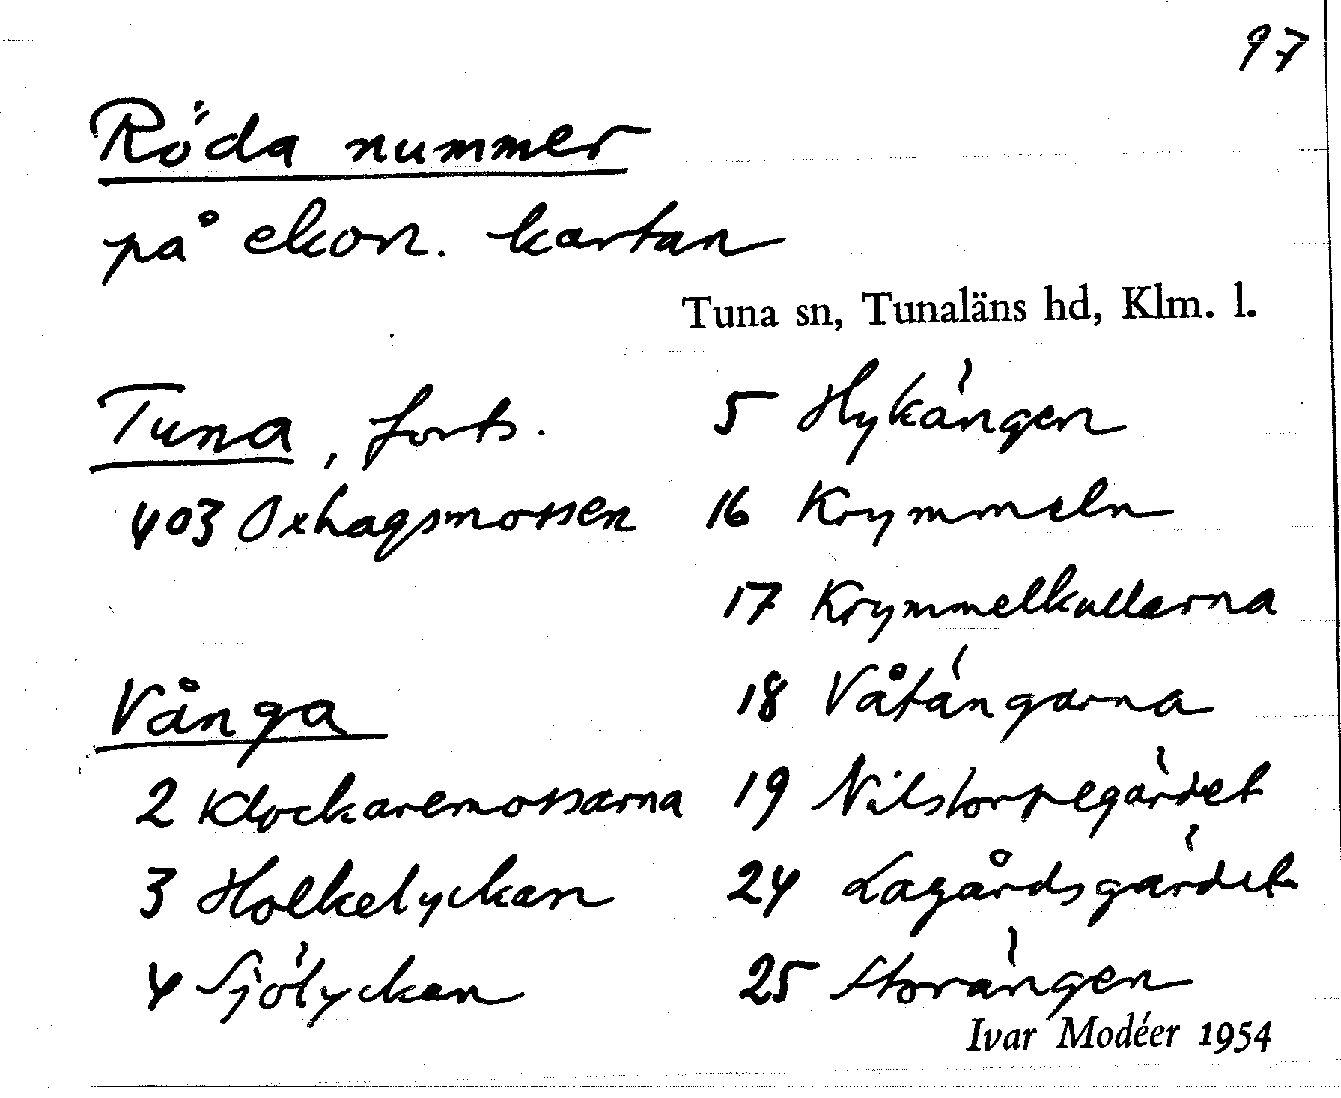 97
Röda nummer
på ekon. kartan
Tuna sn, Tunaläns hd, Klm. l.
Tuna, forts.
403 Oxhagsmossen
Vånga
2 Klockaremossarna
3 Holkelyckan
4 Sjölyckan
5 Hykängen
16 Krymmeln
17 Krymmelkullarna
18 Våtängarna
19 Nilstorpegärdet
24 Lagårdsgärdet
25 Storängen
Ivar Modéer 1954